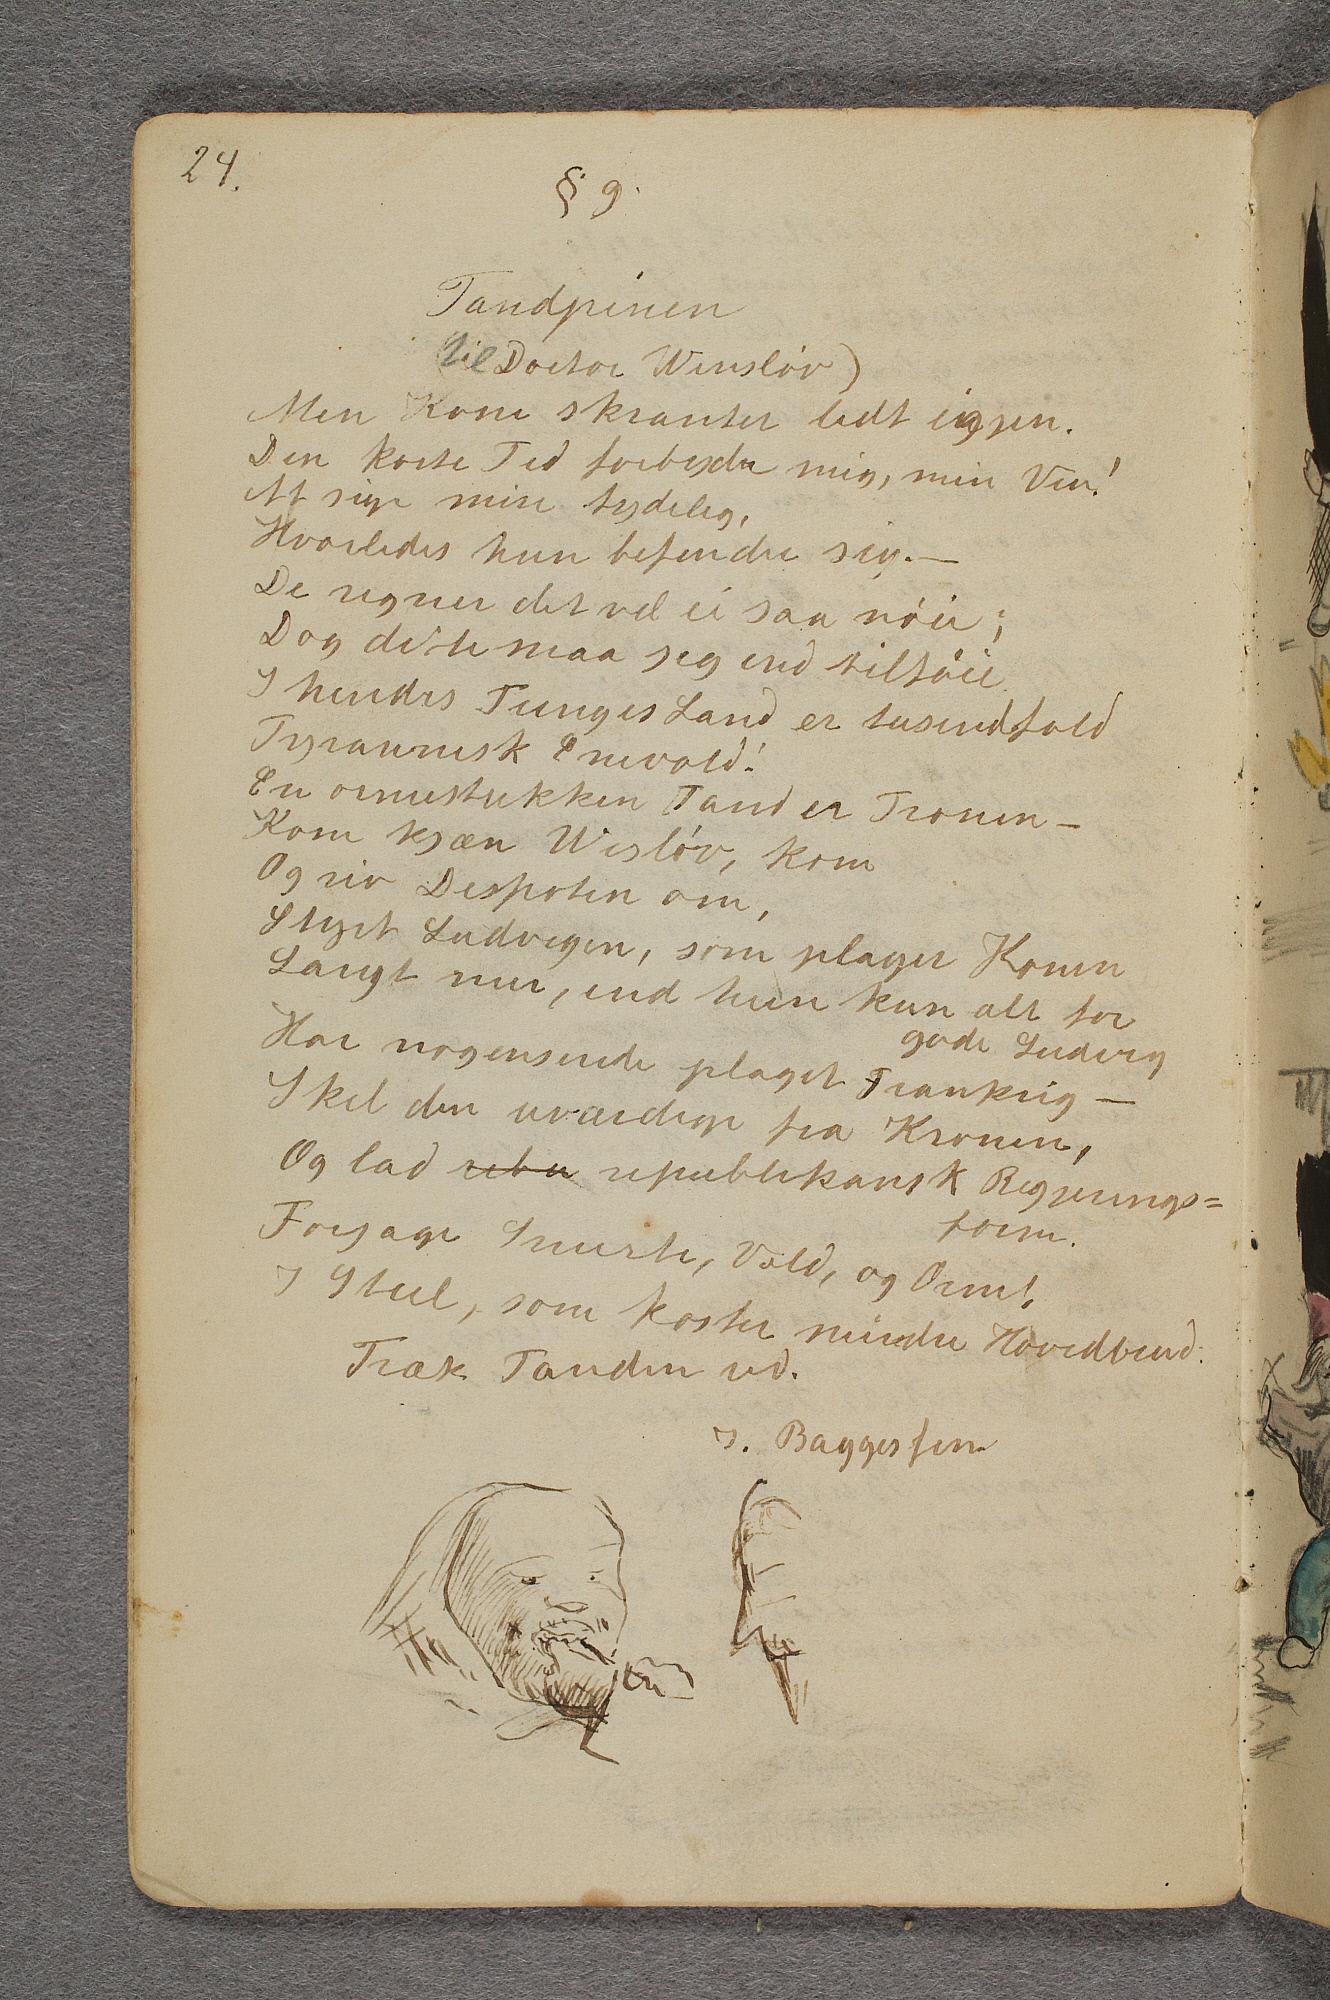 24.
§ 9.
Tandpinen
(til Doctor Winsløv)
Men Kone skranter lidt iigjen.
Den korte Tid forbyder mig, min Ven!
At sige mere tydelig,
Hvorledes hun befinder sig. —
De regner det vel ei saa nøie;
Dog dette maa jeg end tilføie
I hendes Tunges Land er tusindfold
Tyrannisk Enevold!
En ormestukken Tand er Tronen —
Kom kjæn Wisløv, kom
Og riv Despoten om,
Styrt Ludvigen, som plager Konen
Langt mer, end hun kun alt for
gode Ludvig
Har nogensinde plaget Frankrig —
Skil den uværdige fra Kronen,
Og lad republikansk Regjerings=
form.
Forjage Smerte, Vold, og Orm!
I Steel, som koster mindre Hovedbrud.
Træk Tanden ud.
J. Baggesen